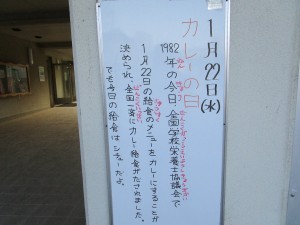 1月22日(水)
カレーの日
1982年の今日、全国学校栄養士協議会で
1月22日の給食のメニューをカレーにすることが
決められ、全国一斉にカレー給食がだされました。
でも今日の給食はシチューだよ。